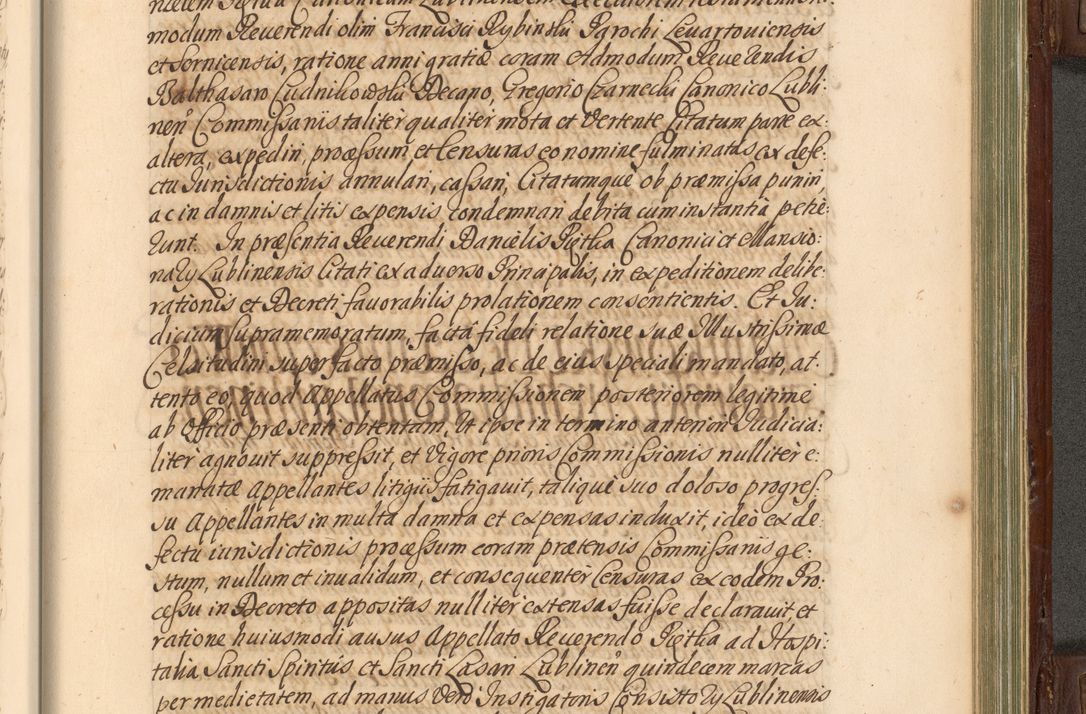 modum Reverendi olim Francisci Rybinski Parochi Levartoviensis
et Sernicensis, ratione anni gratiæ coram Admodum Reverendis
Balthasaro Cudnikowski Decano, Gregorio Czarnecki Canonico Lubli:
nen Commissariis taliter qualiter mota et vertente Citatum parte ex
altera, expediri, processum et Censuras eo nomine fulminatas ex defe:
ctu Jurisdictionis annulari, cassari, Citatumque ob præmissa puniri,
ac in damnis et litis expensis condemnari debita cum instantia petie:
runt. In præsentia Reverendi Danielis Piętka Canonici et Mansio:
narÿ Lublinensis Citati ex adverso Principalis, in expeditionem delibe:
rationis et Decreti favorabilis prolationem consentientis. Et Iu:
dicium supramemoratum, facta fideli relatione suæ Illustrissimæ
Celsitudini super facto præmisso, ac de eius speciali mandato, at
tento eo, quod Appellatus Commissionem posteriorem legitime
ab Officio præsenti obtentam, ut ipse in termino anteriori Judicia:
liter agnovit suppressit, et vigore prioris Commissionis nulliter e:
manatæ Appellantes litigiis fatigavit, talique suo doloso progres:
su Appellantes in multa damna et expensas induxit, ideo ex de:
fectu iurisdictionis processum coram prætensis Commissariis ge:
stum, nullum et invalidum, et consequenter Censuras ex eodem Pro:
cessu in Decreto appositas nulliter extensas fuisse declaravit, et
ratione huiusmodi ausus Appellato Reverendo Piętka ad Hospi:
talia Sancti Spiritus et Sancti Lasari Lublinen quindecem marcas
per medietatem, ad manus vero Instigatoris Consistorÿ Lublinensis